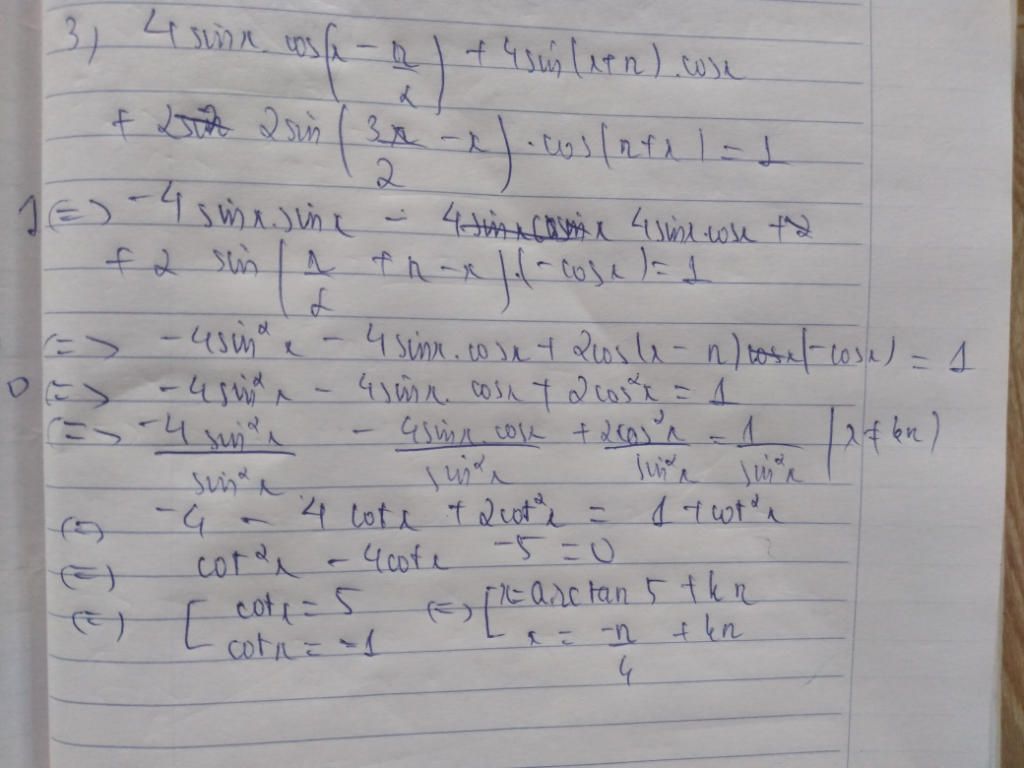 3) 4 sinx. cos(x - π/2) + 4sin(x+π).cosx
+ 2sin(3π/2 - x).cos(π+x) = 1
1 <=> -4 sinx.sinx - 4sinx.cosx +2
+ 2 sin(π/2 + π - x).(-cosx) = 1
<=> -4sin²x - 4sinx.cosx + 2cos(x - π)(-cosx) = 1
0 <=> -4sin²x - 4sinx. cosx + 2cos²x = 1
<=> -4sin²x/sin²x - 4sinx.cosx/sin²x + 2cos²x/sin²x = 1/sin²x (x ≠ kπ)
<=> -4 - 4 cotx + 2cot²x = 1 + cot²x
<=> cot²x - 4cotx -5 = 0
<=> [ cotx = 5 <=> [ x = arctan 5 + kπ
cotx = -1 x = -π/4 + kπ